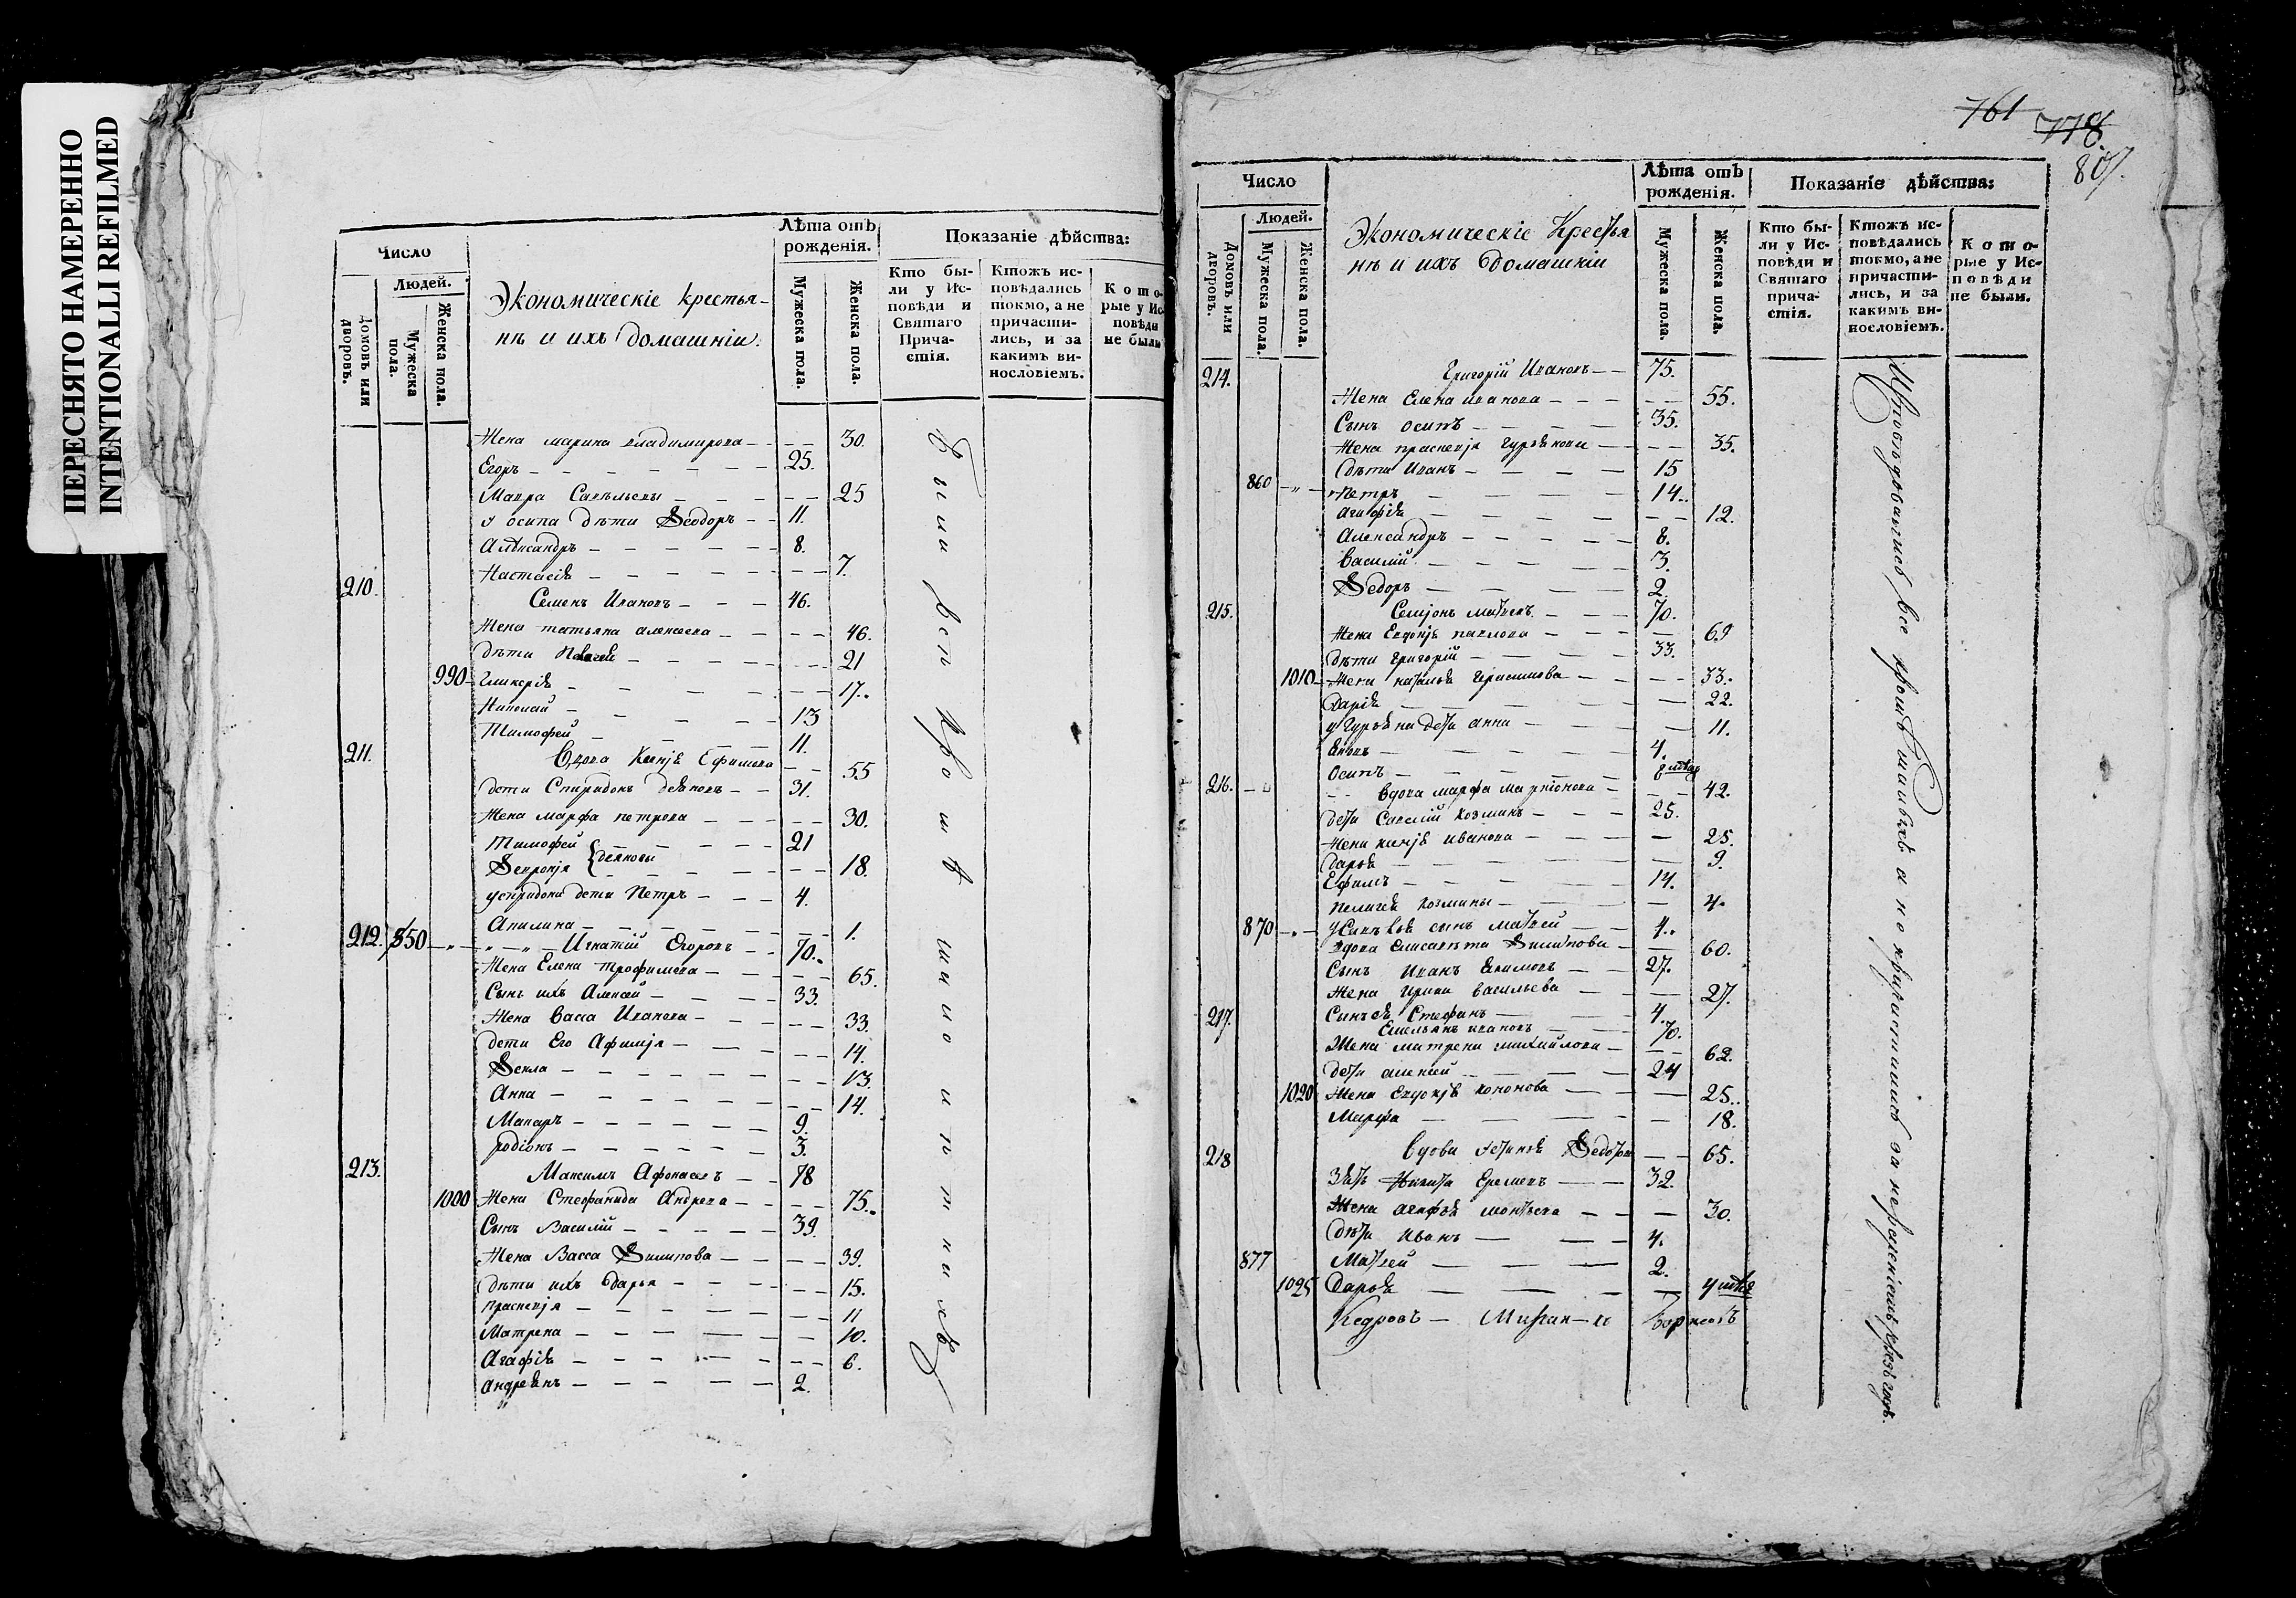 ПЕРЕСНЯТО НАМЕРЕННО
INTENTIONALLI REFILMED
Число
Людей.
Домовъ или дворовъ.
Мужеска пола.
Женска пола.
Экономическіе крестья-
нѣ и ихъ домашніи.
Лѣта отъ рожденія.
Мужеска пола.
Женска пола.
Показаніе дѣйства:
Кто бы-
ли у Ис-
повѣди и
Святаго
Прича-
стія.
Ктожъ ис-
повѣдались
токмо, а не
причасти-
лись, и за
какимъ ви-
нословіемъ.
Кото-
рые у Ис-
повѣди
не были
Жена марина владимирова 30.
Егоръ 25.
Мавра Савельева 25
у осипа дѣти Ѳеодоръ 11.
Алѣксандръ 8.
Настасія 7.
210. Семенъ Ивановъ 46.
Жена татьяна алексеева 46.
дѣти 21
990 Гликерія 17.
Николай 13
Тимофей 11.
211. Вдова Ксенія Ефимова 55
дети Спиридонъ 31.
Жена марфа петрова 30.
Тимофей 21
Ѳевронія 18.
у спиридона дети Петръ 4.
Акилина 1.
212. 850 Игнатий Егоровъ 70.
Жена Елена Трофимова 65.
Сынъ ихъ Алексей 33.
Жена Васса Иванова 33.
дети Его Афимія 14.
Ѳекла 13.
Анна 14.
Макаръ 9.
родіонъ 3.
213. Максимъ Афонасевъ 78
1000 Жена Стефанида Андреева 75.
Сынъ Василій 39.
Жена Васса Ѳилипова 39.
дѣти ихъ дарья 15.
прасковія 11
Матрена 10.
Агафія 6.
андреянъ 2.
Были вси кромѣ
761
778
807.
Число
Людей.
Домовъ или дворовъ.
Мужеска пола.
Женска пола.
Экономическіе Крестья
нѣ и ихъ домашніи
Лѣта отъ рожденія.
Мужеска пола.
Женска пола.
Показаніе дѣйства:
Кто бы-
ли у Ис-
повѣди и
Святаго
прича-
стія.
Ктожъ ис-
повѣдались
токмо, а не
причасти-
лись, и за
какимъ ви-
нословіемъ.
Кото-
рые у Ис-
повѣди
не были.
214. Григорій Ивановъ 75.
Жена Елена иванова 55.
Сынъ осипъ 35.
Жена прасковія гурьянова 35.
Дѣти Иванъ 15
860 Петръ 14.
агафія 12.
Александръ 8.
Василий 3.
Ѳедоръ 2.
215. Семіонъ матвеевъ 70.
Жена Евдокія павлова 69
дѣти григорій 33.
1010 Жена наталья герасимова 33.
Дарія 22.
у Гурьяна дети анна 11.
яковъ 4.
Осипъ 8
216. вдова марфа 42.
дети Савелий козминъ 25.
Жена ксенія иванова 25.
Дарья 9.
Ефимъ 14.
пелагея козмины 4.
870 сынъ матвей 4.
вдова Елисавета Ѳилипова 60.
Сынъ Иванъ Екимовъ 27.
Жена Ирина васильева 27.
Сынъ ея Стефанъ 4.
217. Емельянъ ивановъ 70.
Жена матрена михайлова 62.
дети алексей 24
1020 Жена Евдокія кононова 25.
Марфа 18.
218 Вдова устинья Ѳедотова 65.
Зять Никита Еремеевъ 32.
Жена агафья 30.
Дѣти Иванъ 4.
877 Матвей 2.
1025 Дарья 4
Исповѣдовались все кромѣ малыхъ а не причастились за нерачениемъ